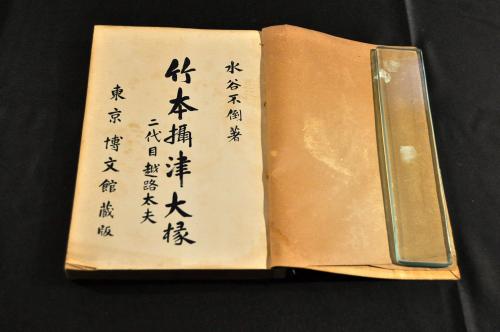 水谷不倒著
竹本攝津大掾
二代目越路太夫
東京 博文館蔵版